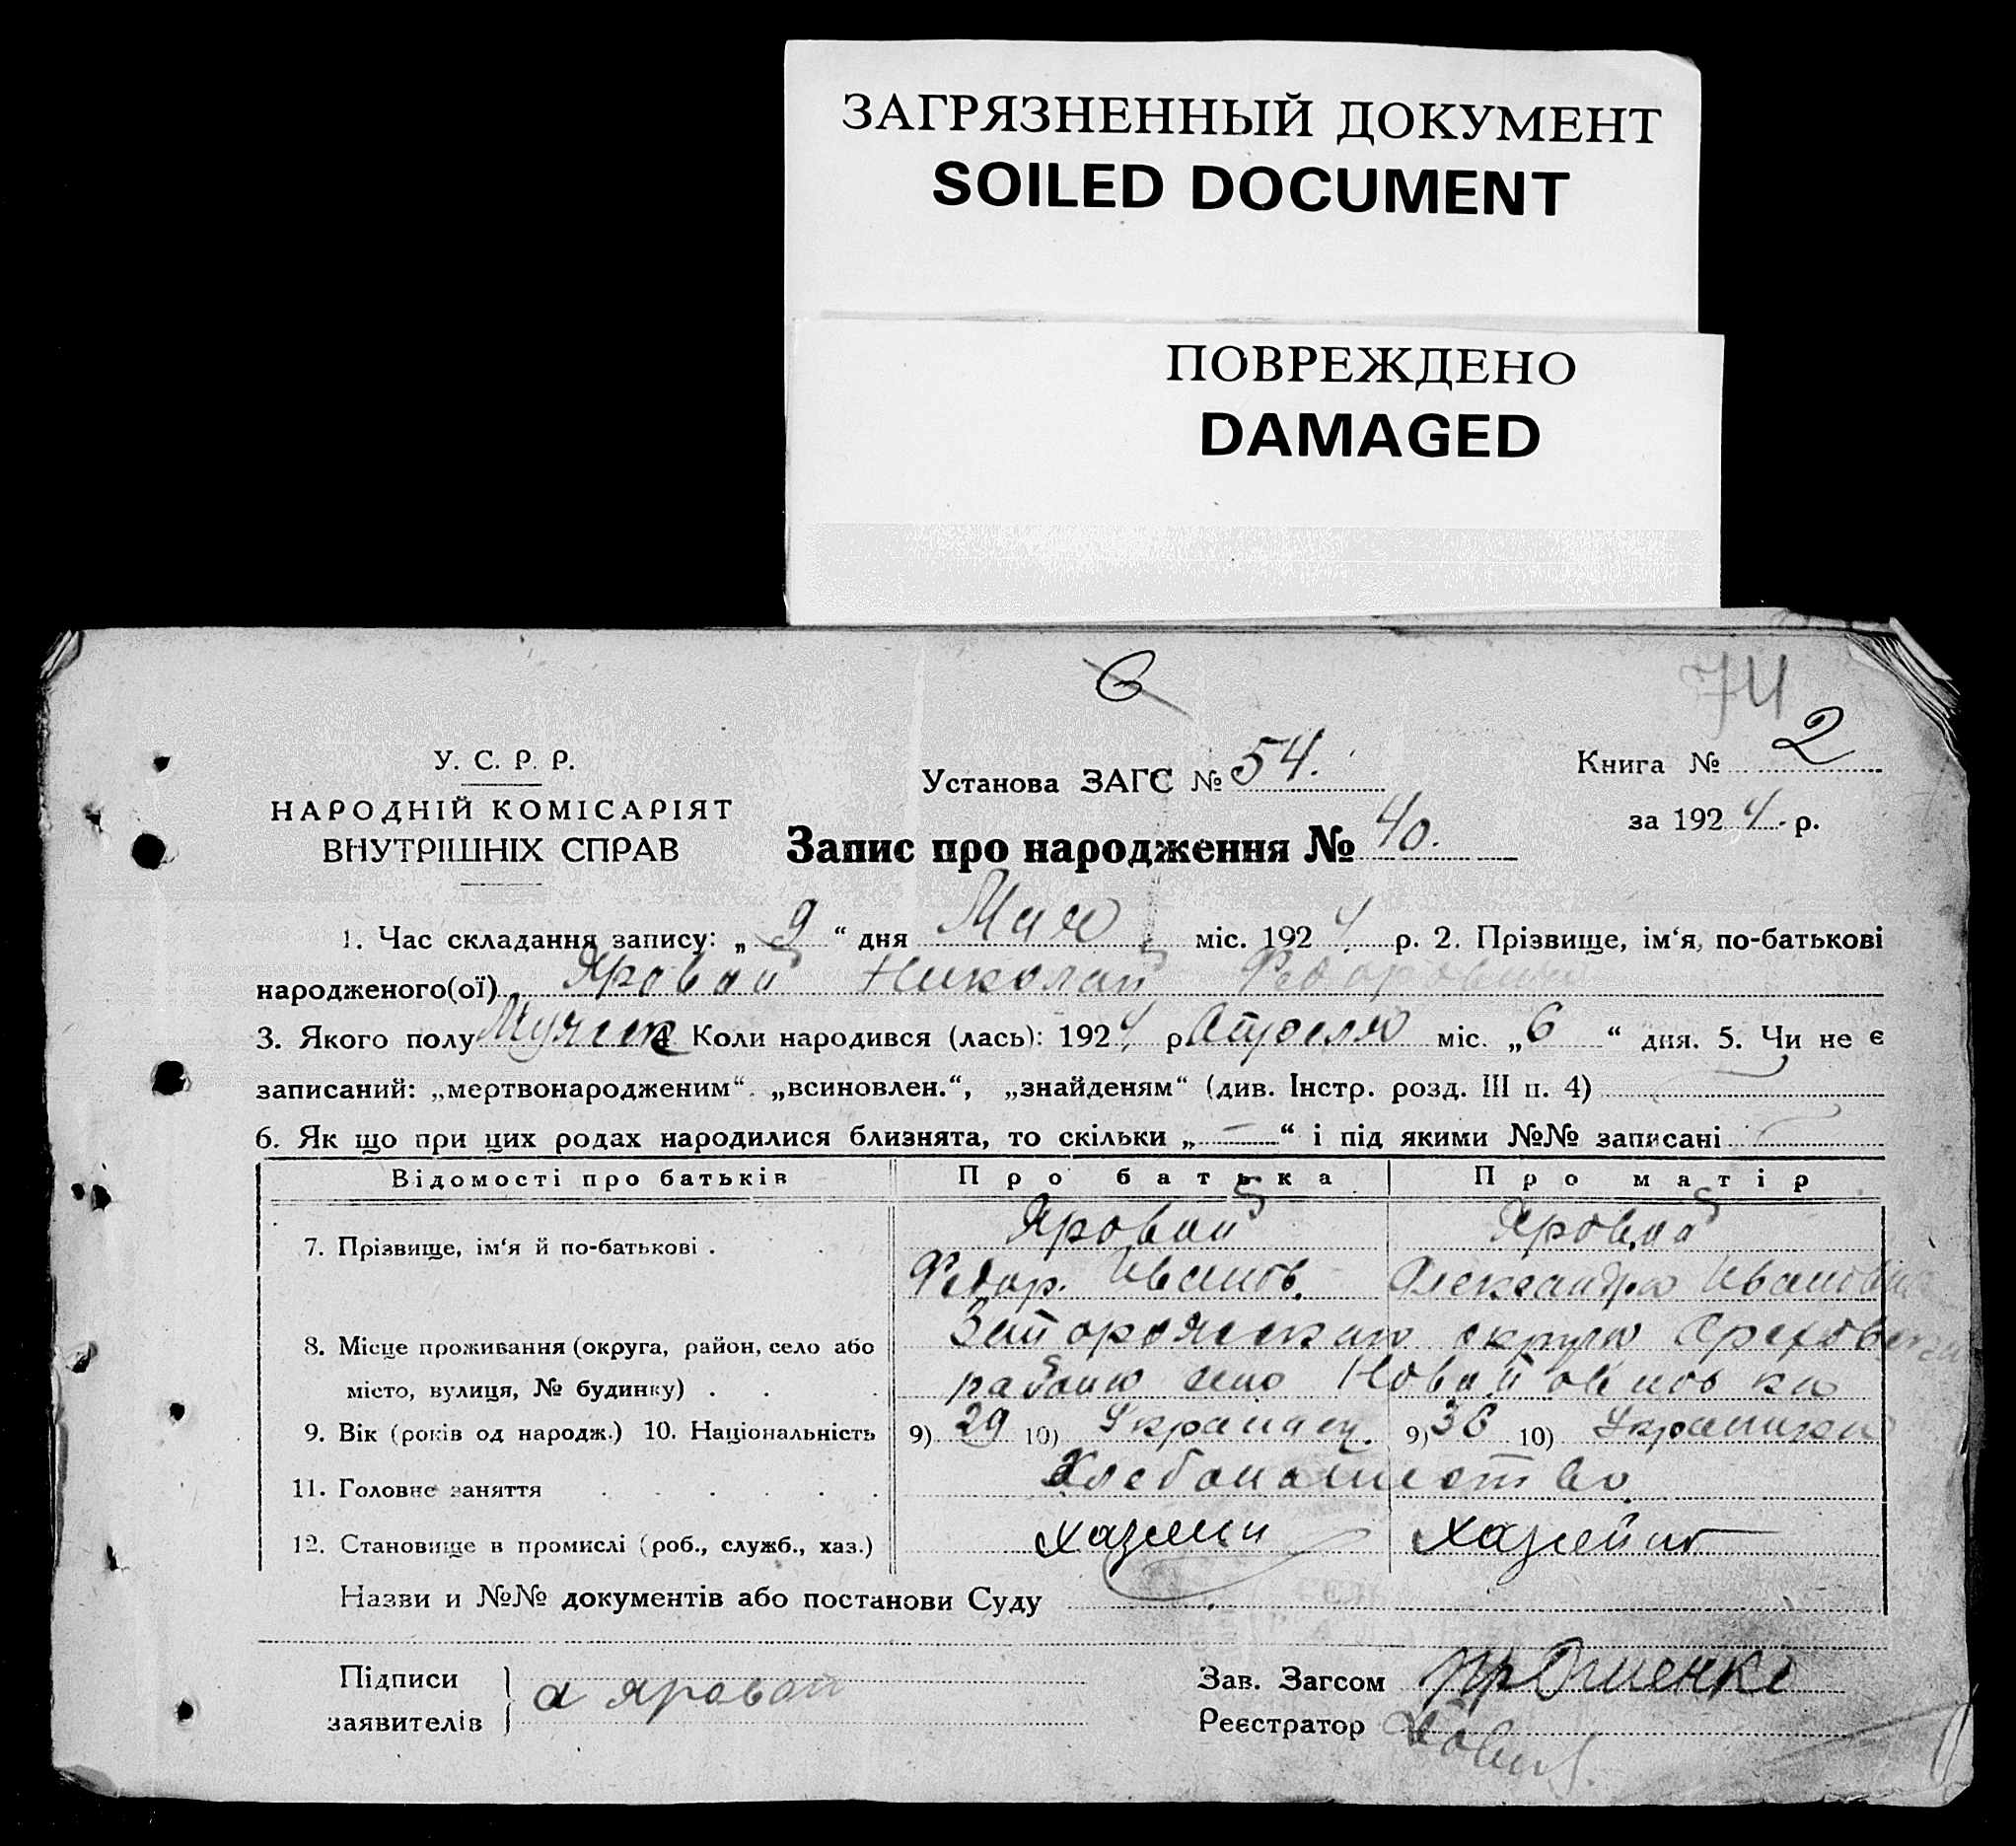 ЗАГРЯЗНЕННЫЙ ДОКУМЕНТ
SOILED DOCUMENT
ПОВРЕЖДЕНО
DAMAGED
6
74
У. С. Р. Р.
НАРОДНІЙ КОМІСАРІЯТ
ВНУТРІШНІХ СПРАВ
Установа ЗАГС № 54.
Запис про народження № 40.
Книга № 2
за 1924 р.
1. Час складання запису: „ 9 “ дня Мая міс. 1924 р. 2. Прізвище, ім‘я, по-батькові
народженого(ої) Яровой Николай Федорович
3. Якого полу Мужск 4. Коли народився (лась): 1924 р. Апреля міс. „6“ дня. 5. Чи не є
записаний: „мертвонародженим“. „всиновлен.“, „знайденям“ (див. Інстр. розд. III п. 4)
6. Як що при цих родах народилися близнята, то скільки „ — “ і під якими №№ записані —
Відомості про батьків Про батька Про матір
7. Прізвище, ім‘я й по-батькові . Яровой Яровая
Федор. Иванов. Александра Ивановна
8. Місце проживання (округа, район, село або Запорожская округа
місто, вулиця, № будинку) . . . района село
9. Вік (років од народж.) 10. Національність 9) 29 10) Украинец. 9) 36 10) Украинка
11. Головне заняття . . . . . . Хлебопашество
12. Становище в промислі (роб., служб., хаз.) хазяин хазяйка
Назви и №№ документів або постанови Суду
Підписи
заявителів
а яровой
Зав. Загсом
Реєстратор